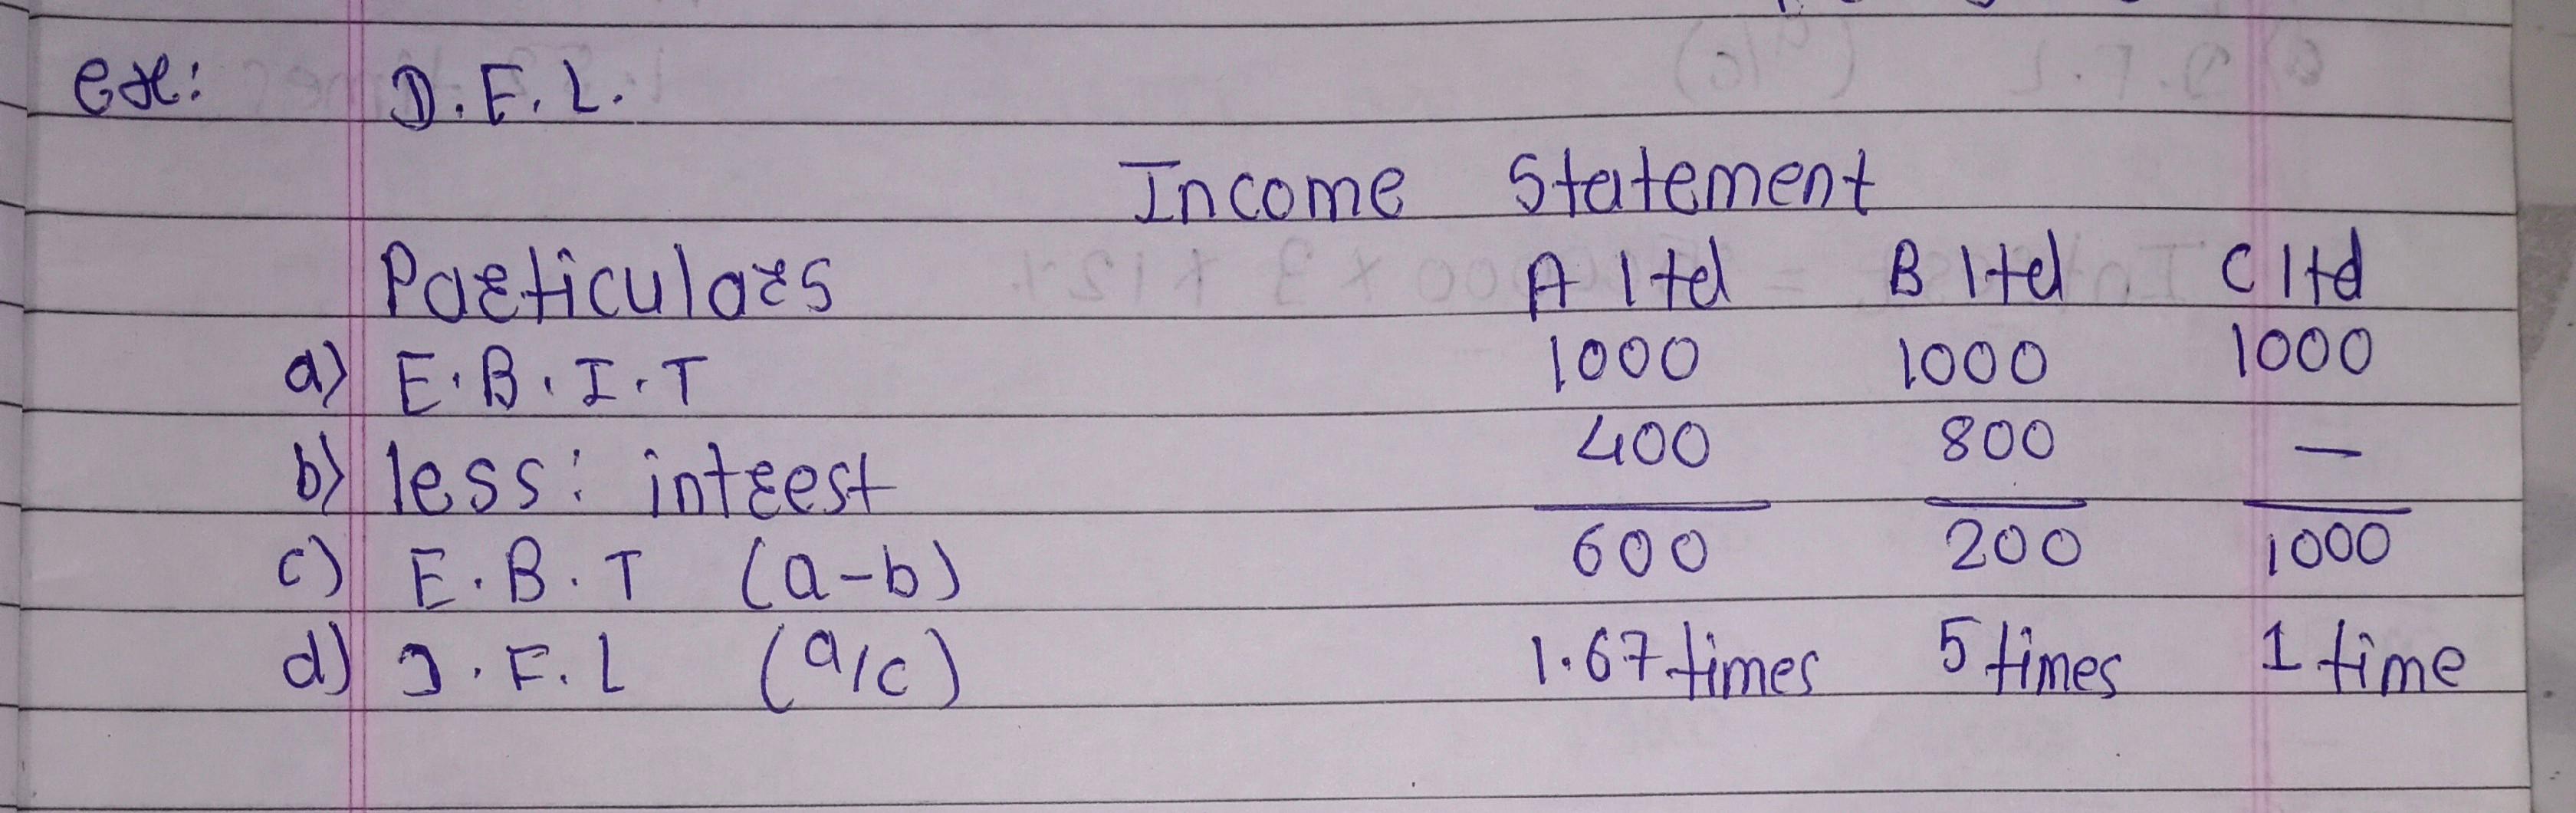 ex: D.F.L.
Income Statement
Particulars A ltd B ltd C ltd
a) E.B.I.T 1000 1000 1000
b) less: intrest 400 800 —
c) E.B.T (a-b) 600 200 1000
d) D.F.L (a/c) 1.67 times 5 times 1 time